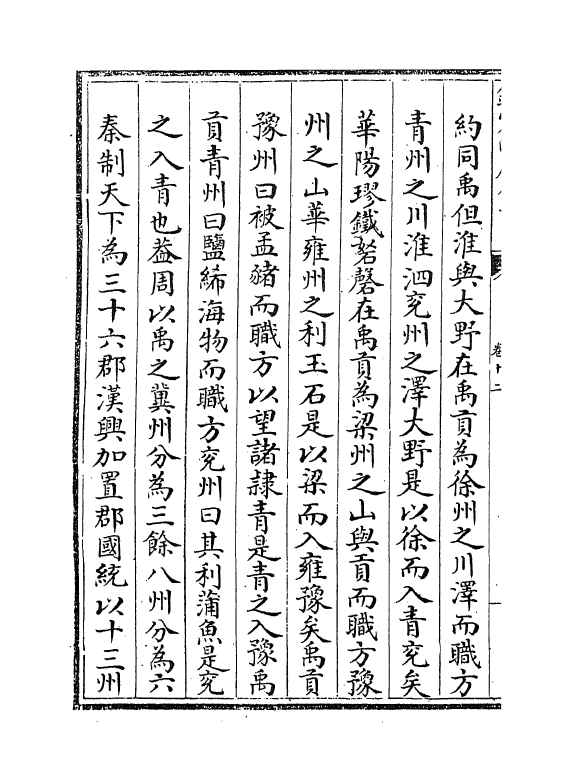 約同禹但淮與大野在禹貢為徐州之川澤而職方
青州之川淮泗兖州之澤大野是以徐而入青兖矣
華陽璆鐵砮磬在禹貢為梁州之山與貢而職方豫
州之山華雍州之利玉石是以梁而入雍豫矣禹貢
豫州曰被孟豬而職方以望諸隸青是青之入豫禹
貢青州曰鹽絺海物而職方兖州曰其利蒲魚是兖
之入青也葢周以禹之冀州分為三餘八州分為六
秦制天下為三十六郡漢興加置郡國統以十三州
卷十二